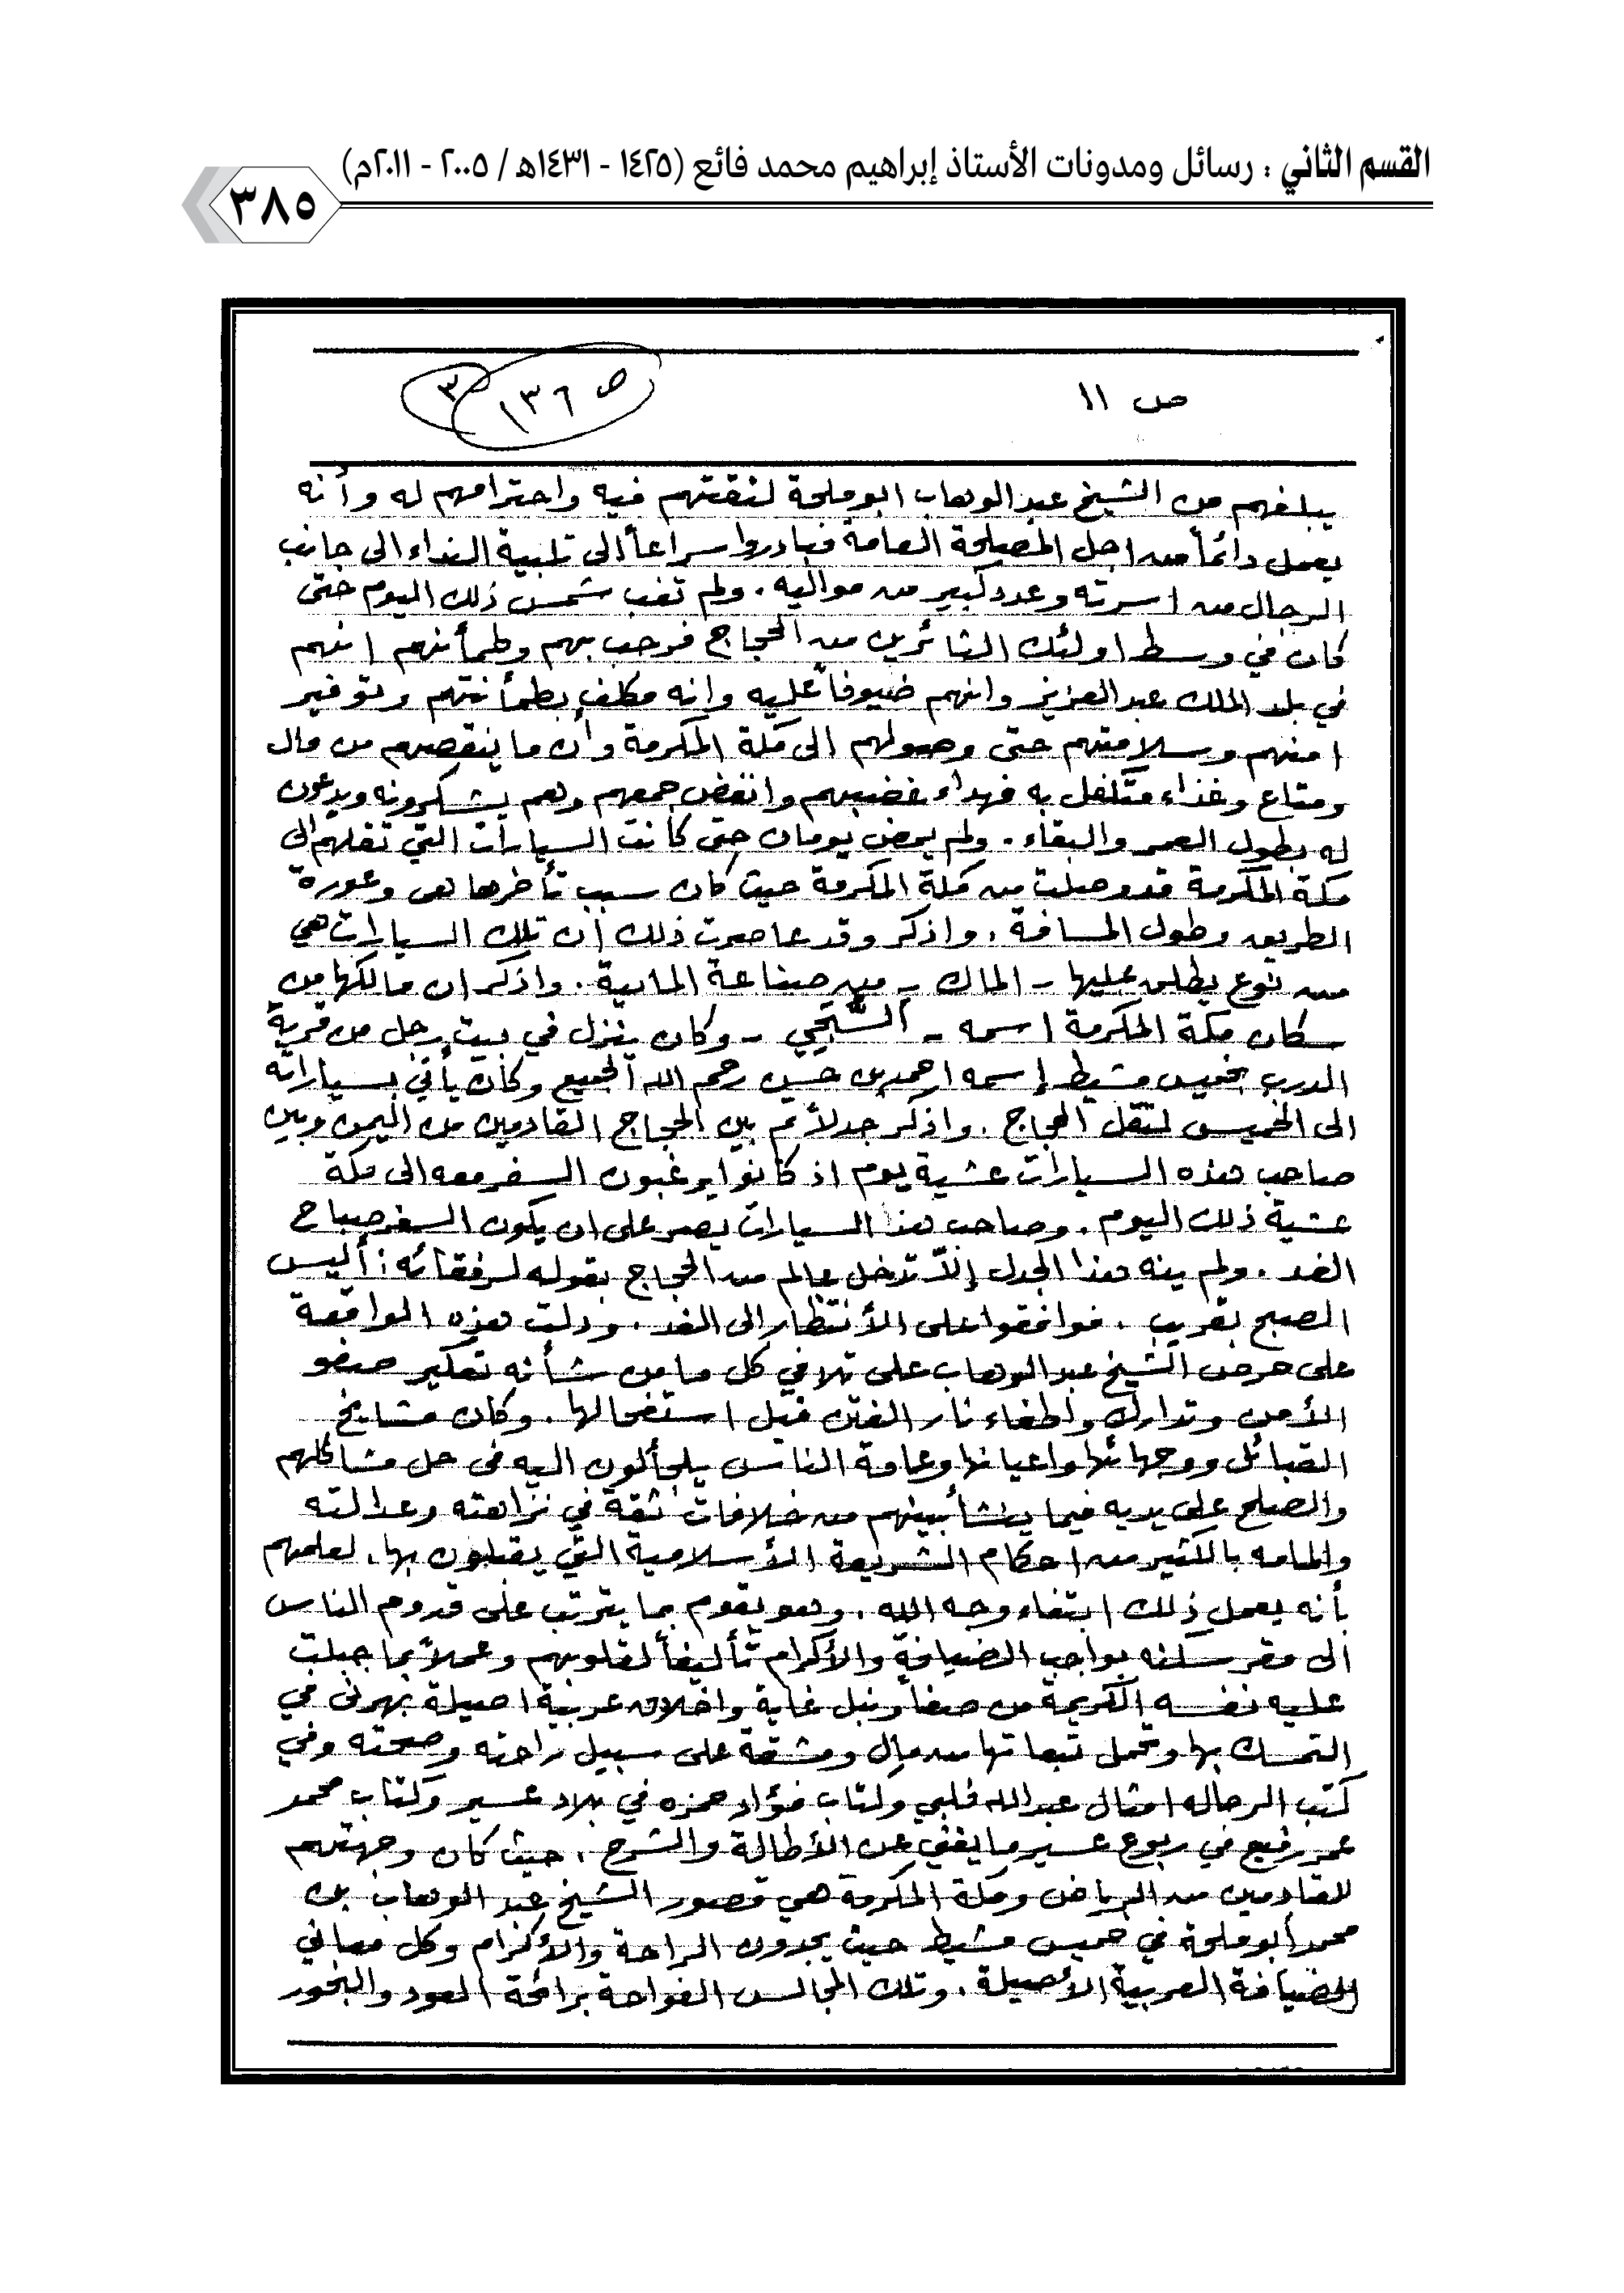 القسم الثاني : رسائل ومدونات الأستاذ إبراهيم محمد فائع (١٤٢٥ - ١٤٣١هـ / ٢٠٠٥ - ٢٠١١م)
٣٨٥
ص ١١
ص ١٣٦
٣
يبلغهم من الشيخ عبدالوهاب ابوملحة لثقتهم فيه واحترامهم له وأنه
يعمل دائماً من اجل المصلحة العامة فبادروا سراعاً الى تلبية النداء الى جانب
الرجال من اسرته وعدد كبير من مواليه . ولم تغب شمس ذلك اليوم حتى
كان في وسط اولئك الثائرين من الحجاج فرحب بهم وطمأنهم انهم
في بلد الملك عبدالعزيز وانهم ضيوفاً عليه وانه مكلف بطمأنتهم وتوفير
امنهم وسلامتهم حتى وصولهم الى مكة المكرمة وأن ما ينقصهم من مال
ومتاع وغذاء متكفل به فهداء غضبهم وانفض جمعهم وهم يشكرونه ويدعون
له بطول العمر والبقاء . ولم يمض يومان حتى كانت السيارات التي تقلهم الى
مكة المكرمة قد وصلت من مكة المكرمة حيث كان سبب تأخرها هى وعورة
الطريق وطول المسافة . واذكر وقد عاصرت ذلك أن تلك السيارات هي
من نوع يطلق عليها - الماك - من صناعة المانية . واذكر ان مالكها من
سكان مكة المكرمة اسمه - السَّبَحِي - وكان ينزل في بيت رجل من قرية
الدرب بخميس مشيط إسمه احمد بن حسين رحم الله الجميع وكان يأتي بسياراته
الى الخميس لتقل الحجاج . واذكر جدلاً تم بين الحجاج القادمين من اليمن وبين
صاحب هذه السيارات عشية يوم اذ كانوا يرغبون السفر معه الى مكة
عشية ذلك اليوم . وصاحب هذا السيارات يصر على ان يكون السفر صباح
الغد . ولم ينه هذا الجدل إلاّ تدخل عالم من الحجاج بقوله لرفقائه : أليس
الصبح بقريب . فوافقوا على الأنتظار الى الغد . ودلت هذه الواقعة
على حرص الشيخ عبدالوهاب على تلافي كل ما من شأنه تعكير صفو
الأمن وتدارك واطفاء نار الفتن قبل استفحالها . وكان مشايخ
القبائل ووجهائها واعيانها وعامة الناس يلجألون اليه فى حل مشاكلهم
والصلح على يديه فيما ينشأ بينهم من خلافات ثقة في نزاهته وعدالته
والمامه بالكثير من احكام الشريعة الأسلامية التي يقبلون بها . لعلمهم
بأنه يعمل ذلك ابتغاء وجه الله . وهو يقوم بما يترتب على قدوم الناس
الى مقر سكنه بواجب الضيافة والأكرام تأليفاً لقلوبهم وعملاً بما جبلت
عليه نفسه الكريمة من صفاً ونبل غاية واخلاق عربية اصيلة في
التمسك بها وتحمل تبعاتها من مال ومشقة على سبيل راحته وصحته وفي
كتب الرحاله امثال عبدالله فلبي وكتاب فؤاد حمزه في بلاد عسير وكتاب محمد
عمر رفيع في ربوع عسير ما يغني عن الأطالة والشرح . حيث كان وجهتهم
للقادمين من الرياض ومكة المكرمة هي قصور الشيخ عبد الوهاب بن
محمد أبوملحة في خميس مشيط حيث يجدون الراحة والأكرام وكل معاني
الضيافة العربية الأصيلة . وتلك المجالس الفواحة برائحة العود والبخور